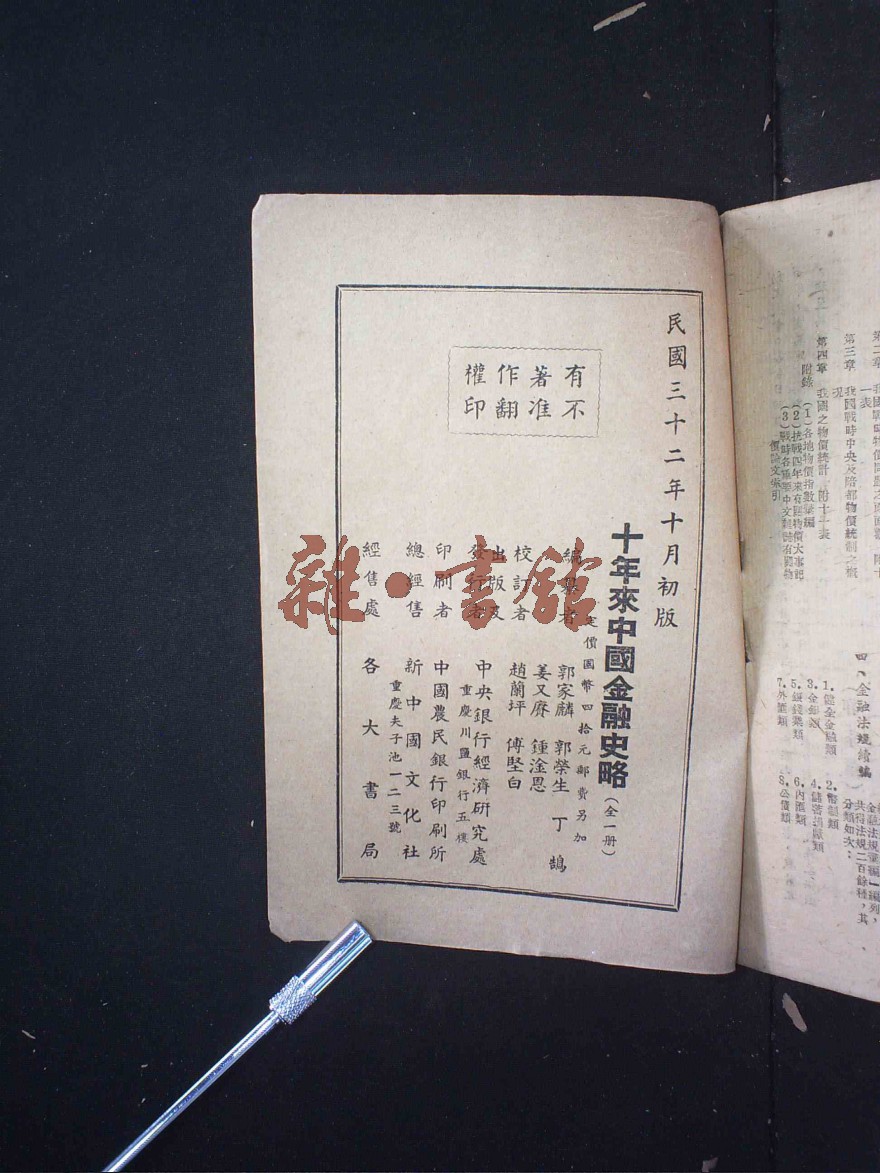 民國三十二年十月初版
有著作權
不准翻印
十年來中國金融史略(全一册)
定價國幣四拾元郵費另加
編纂者 郭家麟 郭榮生 丁鵠
姜又麐 鍾淦恩
校訂者 趙蘭坪 傅堅白
出版及
發行者 中央銀行經濟研究處
重慶川鹽銀行五樓
印刷者 中國農民銀行印刷所
總經售 新中國文化社
重慶夫子池一二三號
經售處 各大書局
雜·書館
第三章 我國戰時中央及陪都物價統制之概
况
第四章 我國之物價統計 附十一表
附錄 (1)各地物價指數彙編
(2)抗戰四年來有關物價大事記
(3)戰時各重要中文雜誌有關物
價論文索引
四、金融法規續編
金融法規彙編一編列,
共得法規二百餘種,其
分類如次:
1.儲金金融類 2.幣制類
3.金銀類
5.銀錢業類 6.內匯類
7.外匯類 8.公債類